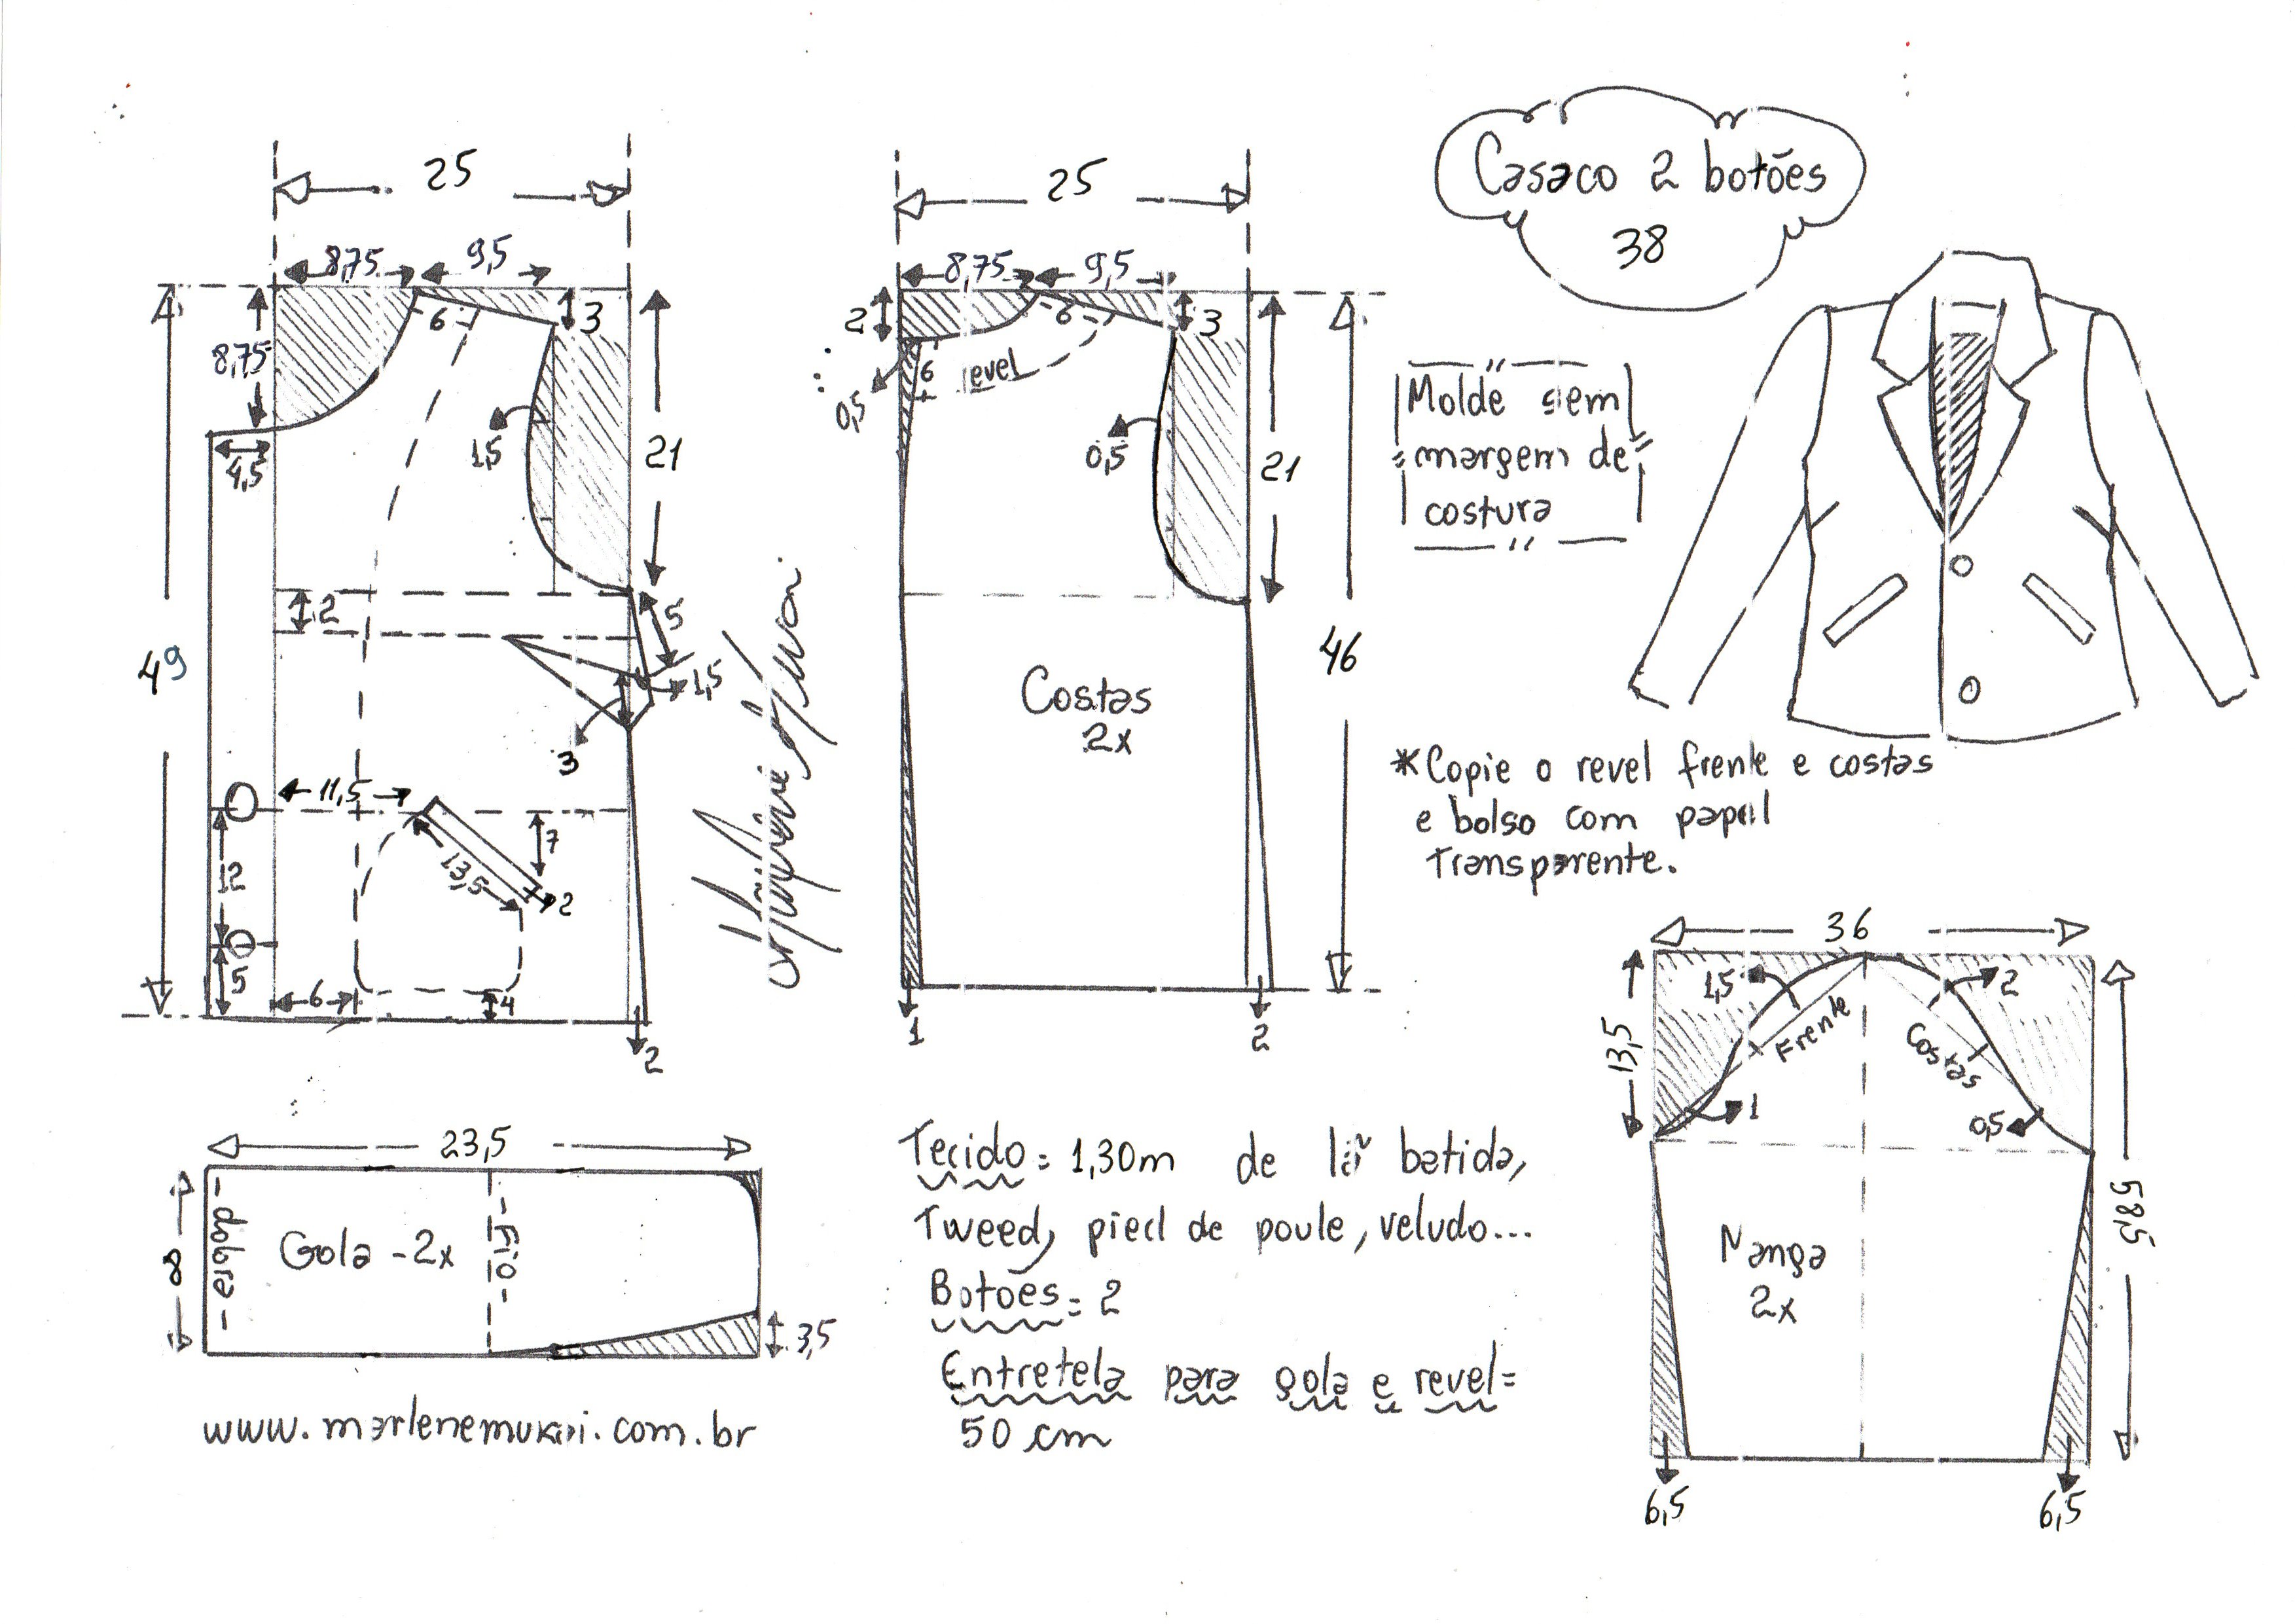 Casaco 2 botões
38
25
8,75
9,5
6
3
8,75
4,5
1,5
21
2
5
1,5
3
49
11,5
7
13,5
2
12
5
6
4
2
25
8,75
9,5
2
6
3
0,5
6
revel
0,5
21
46
Costas
2x
1
2
Molde sem
margem de
costura
*Copie o revel frente e costas
e bolso com papel
transparente.
36
1,5
2
13,5
Frente
Costas
1
0,5
58,5
Manga
2x
6,5
6,5
23,5
8
-dobra-
Gola - 2x
-Fio-
3,5
www.marlenemukai.com.br
Tecido = 1,30m de lã batida,
Tweed, pied de poule, veludo...
Botões = 2
Entretela para gola e revel =
50 cm